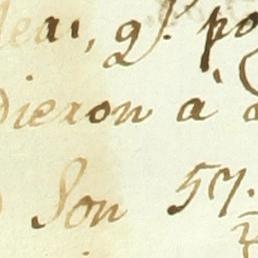 leai, q.ᵉ po
dieron à
Son 57.